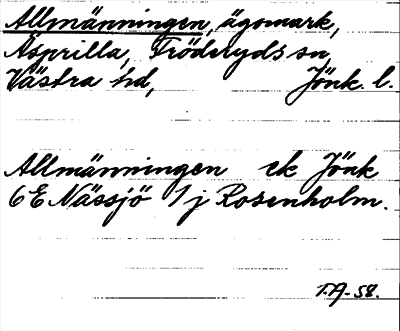 Allmänningen, ägomark,
Äsprilla, Fröderyds sn,
Västra hd, Jönk. l.
Allmänningen ek Jönk
6E Nässjö 1j Rosenholm.
T.A-58.